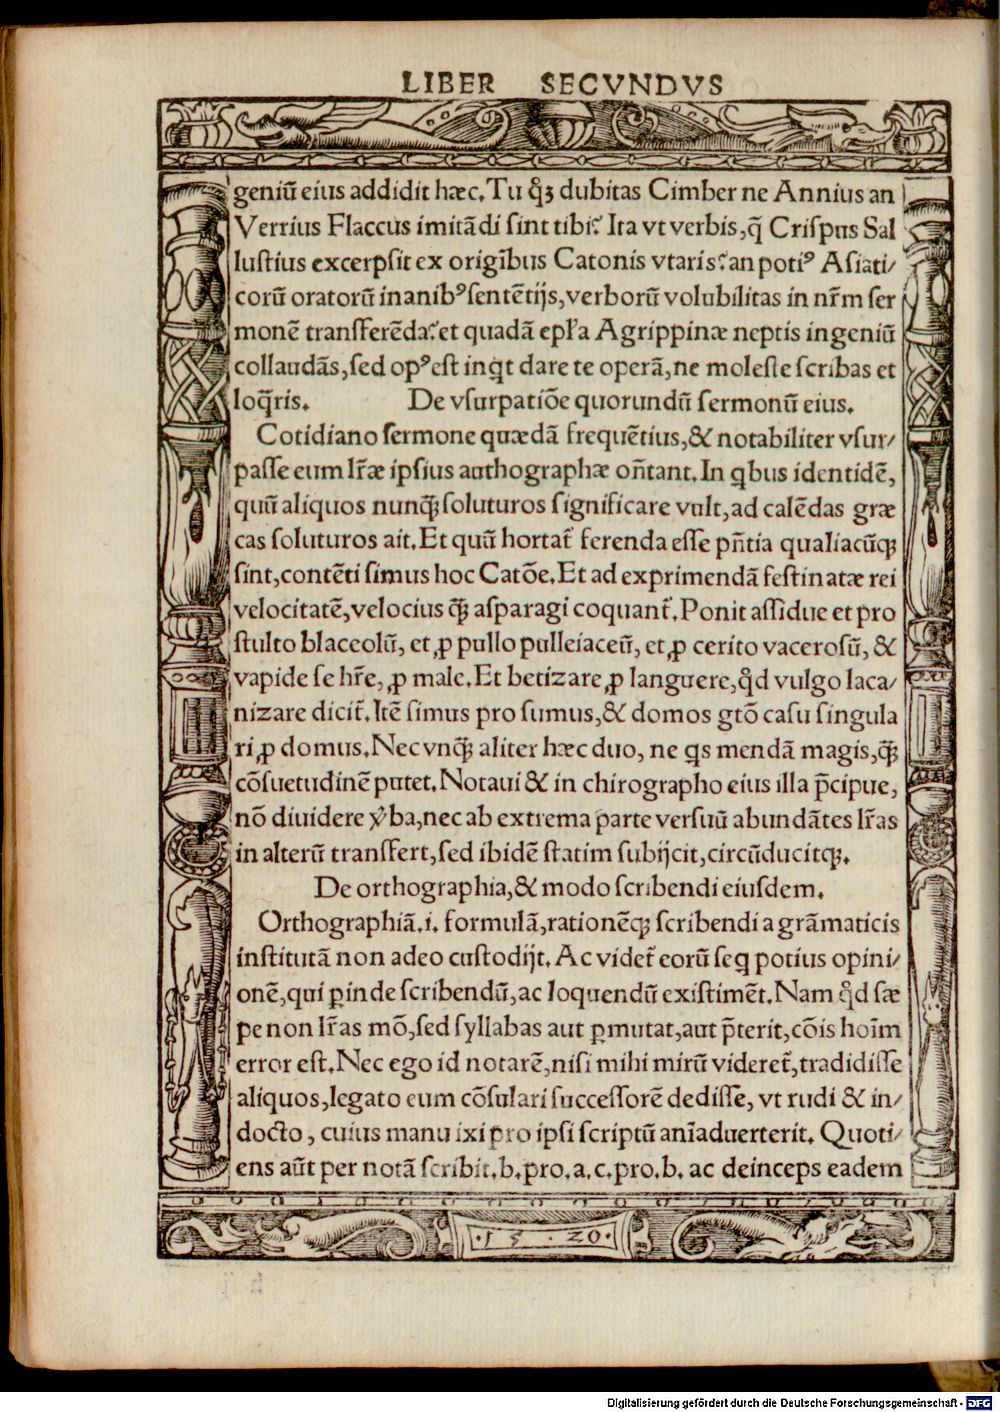 LIBER SECVNDVS
geniū eius addidit hæc. Tu q̊ꝫ dubitas Cimber ne Annius an
Verrius Flaccus imitādi sint tibi? Ita vt verbis, q̄ Crispus Sal
lustius excerpsit ex origībus Catonis vtaris? an potiꝰ Asiati/
corū oratorū inanibꝰ sentētijs, verborū volubilitas in nr̄m ser
monē transferēda? et quadā epl̄a Agrippinæ neptis ingeniū
collaudās, sed opꝰ est inq̇t dare te operā, ne moleste scribas et
loq̄ris. De vsurpatiōe quorundū sermonū eius.
Cotidiano sermone quædā frequētius, & notabiliter vsur/
passe eum lr̄æ ipsius authographæ on̄tant. In qbus identidē,
quū aliquos nunqꝫ̄ soluturos significare vult, ad calēdas græ
cas soluturos ait. Et quū hortat̄ ferenda esse pn̄tia qualiacūqꝫ
sint, contēti simus hoc Catōe. Et ad exprimendā festinatæ rei
velocitatē, velocius qꝫ̄ asparagi coquant̄. Ponit assidue et pro
stulto blaceolū, et ꝓ pullo pulleiaceū, et ꝓ cerito vacerosū, &
vapide se hr̄e, ꝓ male. Et betizare ꝓ languere, q̊d vulgo laca/
nizare dicit̄. Itē simus pro sumus, & domos gtō casu singula
ri ꝓ domus. Nec vnqꝫ̄ aliter hæc duo, ne qs mendā magis, qꝫ̄
cōsuetudinē putet. Notaui & in chirographo eius illa p̄cipue,
nō diuidere v̓ba, nec ab extrema parte versuū abundātes lr̄as
in alterū transfert, sed ibidē statim subijcit, circūducitqꝫ.
De orthographia, & modo scribendi eiusdem.
Orthographiā .i. formulā, rationēqꝫ scribendi a grāmaticis
institutā non adeo custodijt. Ac videt̄ eorū seq potius opini/
onē, qui ꝑinde scribendū, ac loquendū existimēt. Nam q̊d sæ
pe non lr̄as mō, sed syllabas aut ꝑmutat, aut p̄terit, cōis hoīm
error est. Nec ego id notarē, nisi mihi mirū videret̄, tradidisse
aliquos, legato eum cōsulari successorē dedisse, vt rudi & in/
docto, cuius manu ixi pro ipsi scriptū anīaduerterit. Quoti/
ens aūt per notā scribit. b. pro. a. c. pro. b. ac deinceps eadem
·15 20·
Digitalisierung gefördert durch die Deutsche Forschungsgemeinschaft - DFG